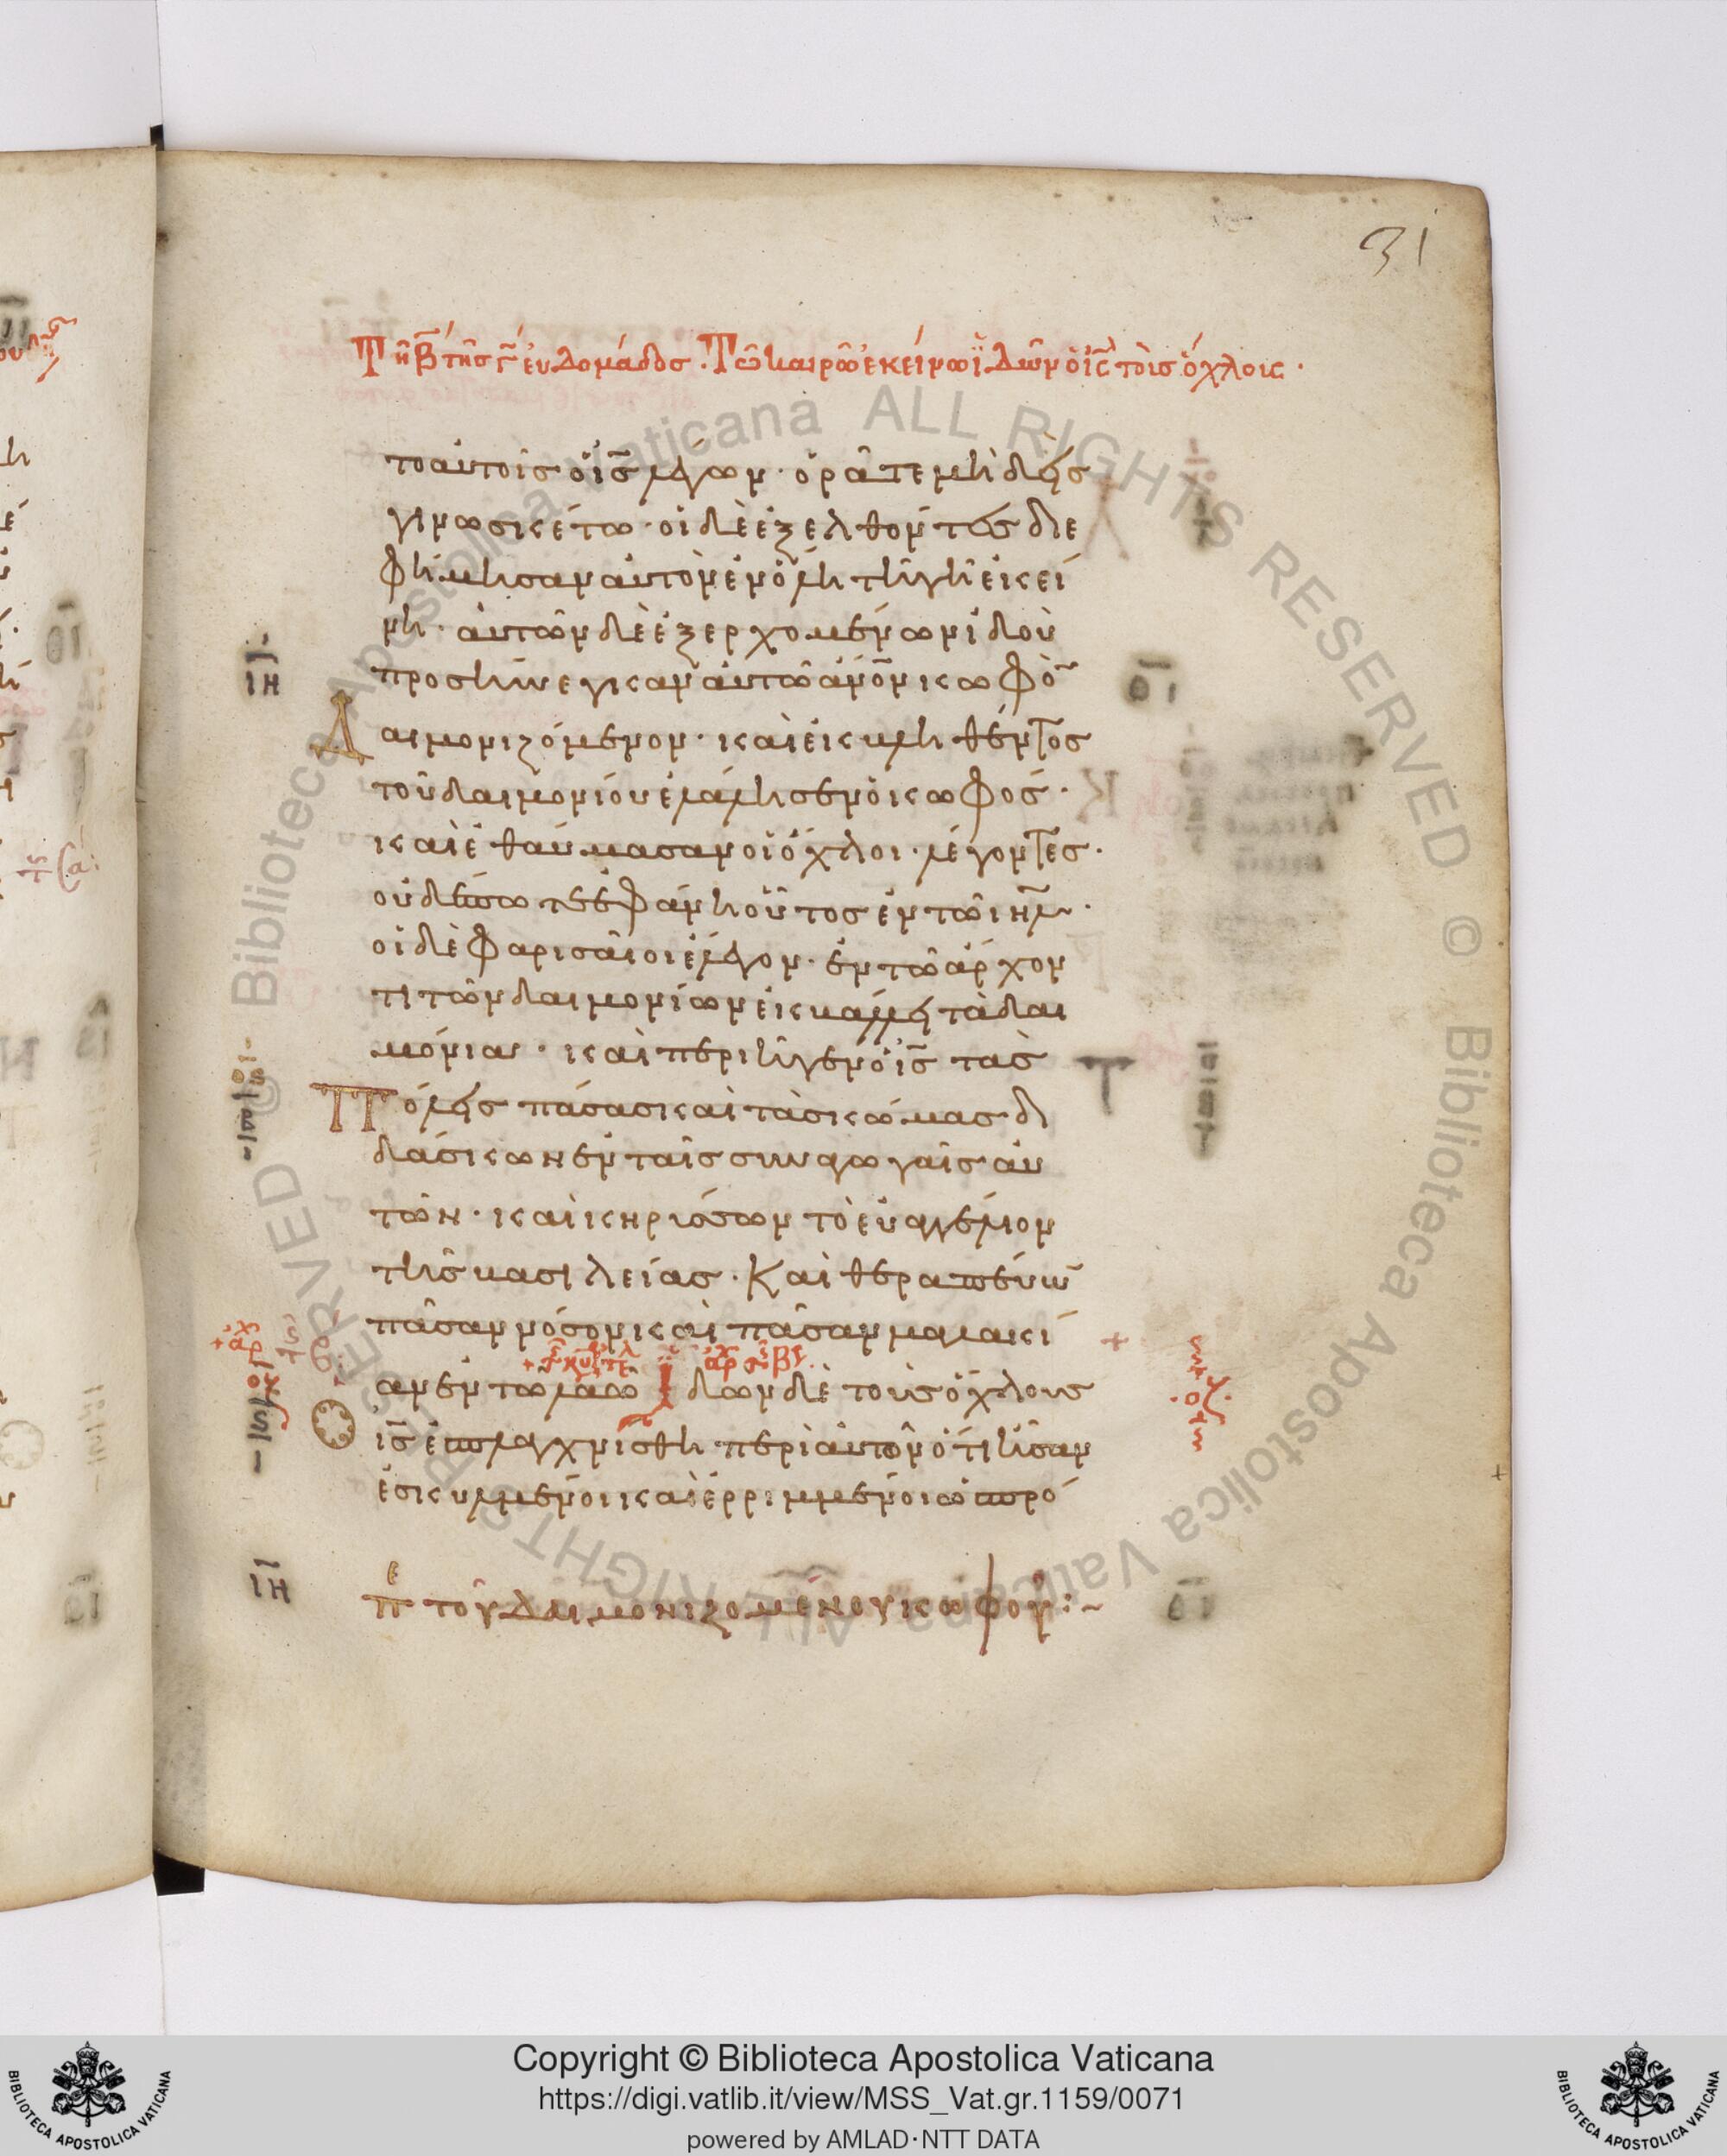 31
Τῆ Β τῆς Γ ἑυδομάδος. Τῶ καιρῶ ἐκείνω ἰδὼν ὁ ἰς τοὺς ὄχλους.
το αὐτοῖς ὁ ἰς λέγων· ὁρᾶτε μὴ δεὶς
γινωσκέτω· οἱ δὲ ἐξελθόντες διε
φήμησαν αὐτὸν ἐν ὅλη τῆ γῆ ἐκεί
νη· αὐτῶν δὲ ἐξερχομένων ἰδοὺ
ΙΗ
προσήνεγκαν αὐτῶ ἄνον κωφὸ
Δαιμονιζόμενον· καὶ ἐκβληθέντος
τοῦ δαιμονίου ἐλάλησεν ὁ κωφός·
καὶ ἐθαύμασαν οἱ ὄχλοι· λέγοντες·
οὐδέποτε ἐφάνη οὕτος ἐν τῶ ιηλ·
οἱ δὲ φαρισαῖοι ἔλεγον· ἐν τῶ ἄρχον
τι τῶν δαιμονίων ἐκβάλλει τὰ δαι
μόνια· καὶ περιῆγεν ὁ ἰς τὰς
Πόλεις πάσας καὶ τὰς κώμας δι
δάσκων ἐν ταῖς συναγωγαῖς αὐ
τῶν· καὶ κηρύσσων τὸ εὐαγγέλιον
τῆς βασιλείας· Καὶ θεραπεύω
πᾶσαν νόσον καὶ πᾶσαν μαλακί
αν ἐν τῶ λαῶ Ἰδὼν δὲ τοὺς ὄχλους
ἰς ἐσπλαγχνίσθη περὶ αὐτῶν ὅτι ἦσαν
ἐσκυλμένοι καὶ ἐρριμμένοι ὡ προ
ΙΗ
π τοῦ Δαιμονιζομένου κωφοῦ:~
Copyright © Biblioteca Apostolica Vaticana
https://digi.vatlib.it/view/MSS_Vat.gr.1159/0071
powered by AMLAD·NTT DATA
BIBLIOTECA APOSTOLICA VATICANA
BIBLIOTECA APOSTOLICA VATICANA
Biblioteca Apostolica Vaticana ALL RIGHTS RESERVED ©
Biblioteca Apostolica Vaticana ALL RIGHTS RESERVED ©